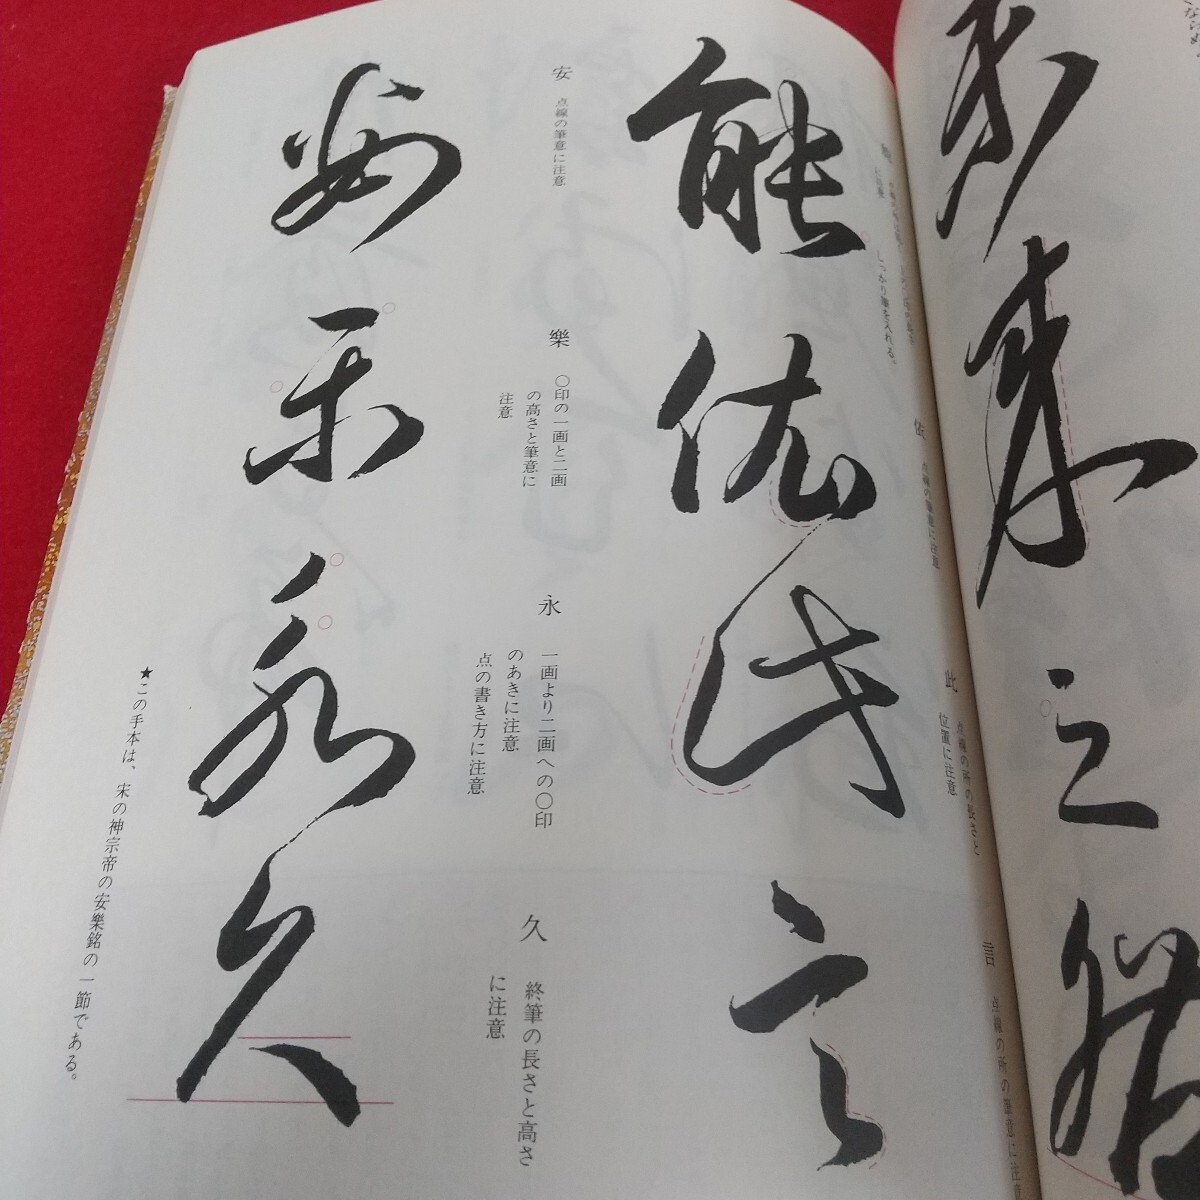 能依此言
能
しっかり筆を入れる。
依 点線の筆意に注意
此 点線の所の長さと
位置に注意
言 点線の所の筆意に注意
安樂永久
安 点線の筆意に注意
樂 〇印の一画と二画
の高さと筆意に
注意
永 一画より二画への〇印
のあきに注意
点の書き方に注意
久 終筆の長さと高さ
に注意
★この手本は、宋の神宗帝の安樂銘の一節である。